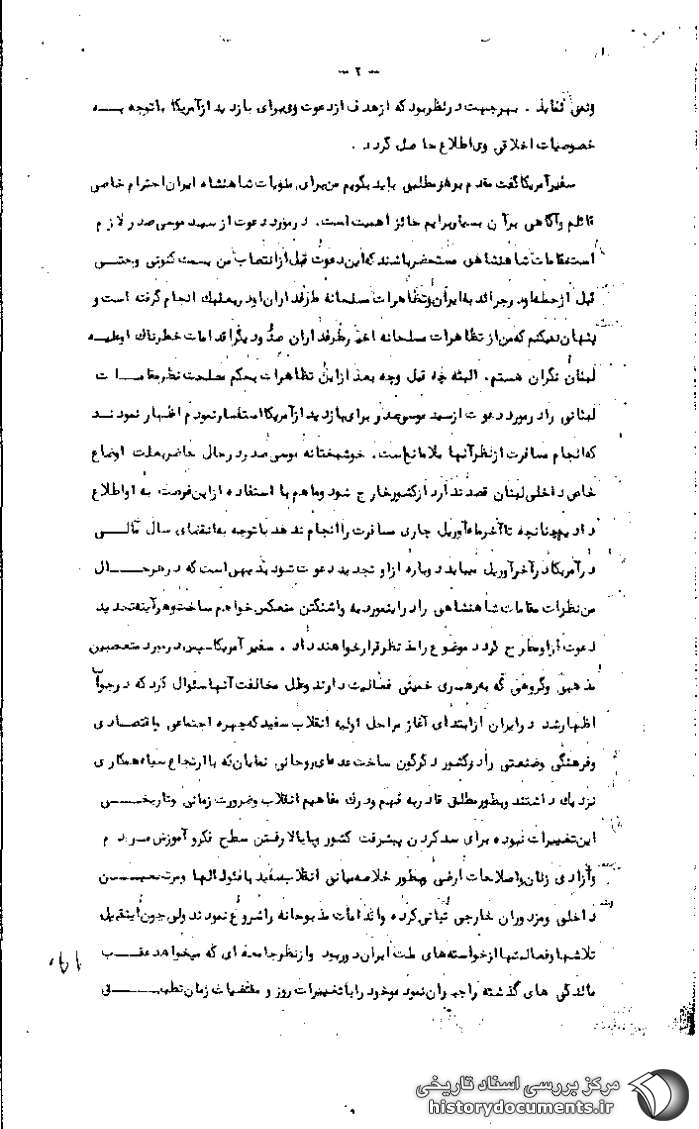 — ۲ —
ونفی نماید . بهرجهت در نظر بود که از هدف از دعوت وی برای بازدید از آمریکا با توجه به
خصوصیات اخلاقی وی اطلاع حاصل گردد .
سفیر آمریکا گفت مقدم بر هر مطلبی باید بگویم من برای منویات شاهنشاه ایران احترام خاصی
قائلم و آگاهی بر آن بسیار برایم حائز اهمیت است . در مورد دعوت از سید موسی صدر لازم
است مقامات شاهنشاهی مستحضر باشند که این دعوت قبل از انتصاب من بسمت کنونی وحتی
قبل از حمله او در جرائد به ایران و تظاهرات مسلحانه طرفداران او در بعلبک انجام گرفته است و
پنهان نمیکنم که من از تظاهرات مسلحانه اخیر طرفداران صدر و دیگر اقدامات خطرناک او علیه
لبنان نگران هستم . البته چه قبل وچه بعد از این تظاهرات بحکم مصلحت نظر مقامات
لبنانی را در مورد دعوت از سید موسی صدر برای بازدید از آمریکا استفسار نمودم اظهار نمودند
که انجام مسافرت از نظر آنها بلامانع است . خوشبختانه موسی صدر در حال حاضر بعلت اوضاع
خاص داخلی لبنان قصد ندارد از کشور خارج شود وما هم با استفاده از این فرصت به او اطلاع
دادیم چنانچه تا آخر ماه آوریل جاری مسافرت را انجام ندهد با توجه به انقضای سال مالی
در آمریکا در آخر آوریل میباید دوباره از او تجدید دعوت شود بدیهی است که در هر حال
من نظرات مقامات شاهنشاهی را در اینمورد به واشنگتن منعکس خواهم ساخت و هر آینه تجدید
دعوت از او مطرح گردد موضوع را مد نظر قرار خواهند داد . سفیر آمریکا سپس در مورد متعصبین
مذهبی وگروهی که به رهبری خمینی فعالیت دارند وعلل مخالفت آنها سئوال کرد که در جواب
اظهار شد در ایران از ابتدای آغاز مراحل اولیه انقلاب سفید که چهره اجتماعی واقتصادی
وفرهنگی وصنعتی را در کشور دگرگون ساخت عده‌ای روحانی نمایان که با ارتجاع سیاه همکاری
نزدیک داشتند وبطور مطلق قادر به فهم ودرک مفاهیم انقلاب وضرورت زمانی وتاریخی
این تغییرات نبوده برای سد کردن پیشرفت کشور وبا بالا رفتن سطح فکر و آموزش مردم
وآزادی زنان واصلاحات ارضی وبطور خلاصه مبانی انقلاب سفید با فئودالها ومرتجعین
داخلی ومزدوران خارجی تبانی کرده واقدامات مذبوحانه را شروع نمودند ولی چون اینقبیل
تلاشها وفعالیتها از خواسته‌های ملت ایران دور بود واز نظر جامعه ای که میخواهد عقب
ماندگی های گذشته را جبران نمود موخود را با تغییرات روز و مقتضیات زمان تطبیق
مرکز بررسی اسناد تاریخی
historydocuments.ir